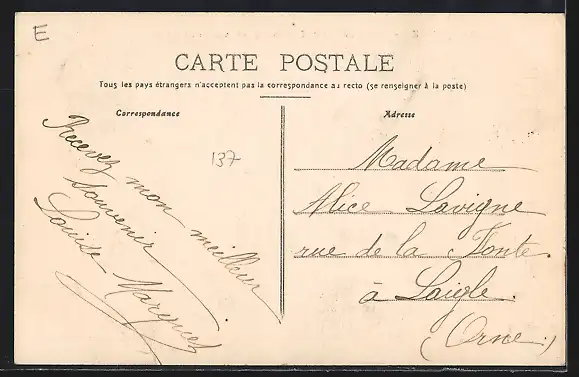 E
CARTE POSTALE
Tous les pays étrangers n'acceptent pas la correspondance au recto (se renseigner à la poste)
Correspondance
Adresse
137
Recevez mon meilleur
souvenir
Louise
Madame
Alice Lavigne
rue de la Fonte
à Laigle.
(Orne)